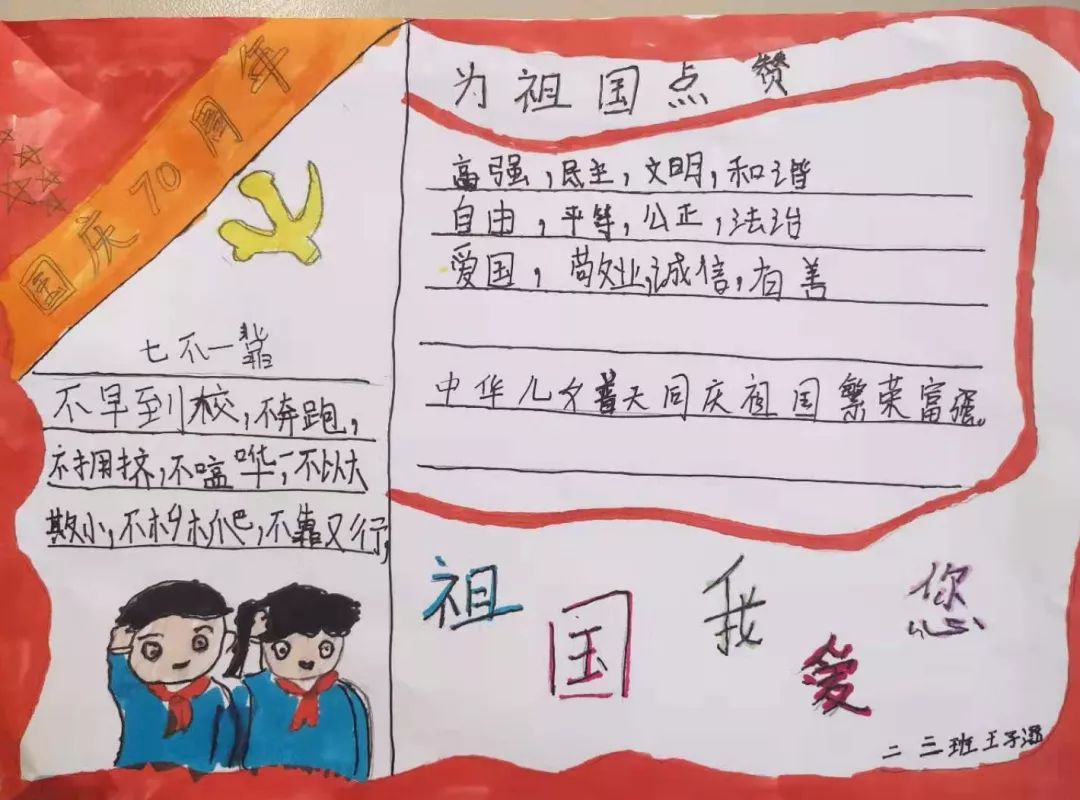 国庆70周年
七不一靠
不早到校，不奔跑，
不拥挤，不喧哗，不以大
欺小，不靠又行，
为祖国点赞
富强，民主，文明，和谐
自由，平等，公正，法治
爱国，敬业，诚信，有善
中华儿夕普天同庆祖国繁荣富强。
祖国我爱您
二三班王子涵